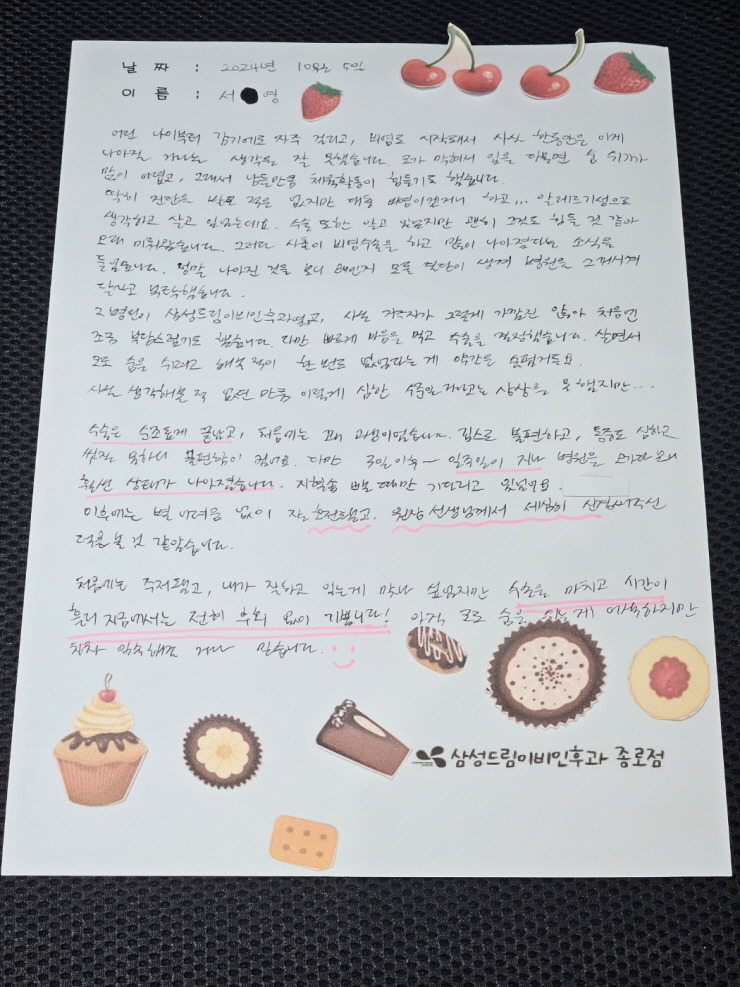 날 짜 : 2024년 10월 5일
이 름 : 서 영
어린 나이부터 감기에도 자주 걸리고, 비염로 시작돼서 사실 한동안은 이게
나아질 거라는 생각을 잘 못했습니다. 코가 막혀서 입을 다물면 숨 쉬기가
많이 어렵고, 그래서 남들만큼 체육활동이 힘들기도 했습니다.
딱히 진단을 받으 적은 없지만 대충 비염이겠거니 하고... 알레르기성으로
생각하고 살고 있었는데요. 수술 또한 알고 있었지만 괜히 그것도 힘들 것 같아
오래 미뤄왔습니다. 그러다 사촌이 비염수술을 하고 많이 나아졌다는 소식을
들었습니다. 정말 나아진 것을 보니 왜인지 모를 결단이 생겨 병원을 소개시켜
달라고 부탁했습니다.
그 병원이 삼성드림이비인후과였고, 사실 거주지가 그렇게 가깝진 않아 처음엔
조금 부담스럽기도 했습니다. 다만 빠르게 마음을 먹고 수술을 결정했습니다. 살면서
코로 숨을 쉬려고 해본 적이 한 번도 없었다는 게 약간은 슬펐거든요.
사실 생각해본 적 없던 만큼 이렇게 심한 거라고는 상상을 못 했지만...
수술은 순조롭게 끝났고, 처음에는 꽤 고생이었습니다. 깁스로 불편하고, 통증도 심하고
씻질 못하니 불편함이 컸어요. 다만 3일이후~ 일주일이 지나 병원을 오가다 보니
훨씬 상태가 나아졌습니다. 지혈솜 빼 때만 기다리고 있었어요.
이후에는 별 어려움 없이 잘 호전됐고, 원장 선생님께서 세심히 신경써주신
덕을 본 것 같았습니다.
처음에는 주저됐고, 내가 잘하고 있는게 맞나 싶었지만 수술을 마치고 시간이
흘러 지금에서는 전혀 후회 없이 기쁩니다! 아직 코로 숨을 쉬는 게 어색하지만
차차 익숙해질 거라 믿습니다.
삼성드림이비인후과 종로점